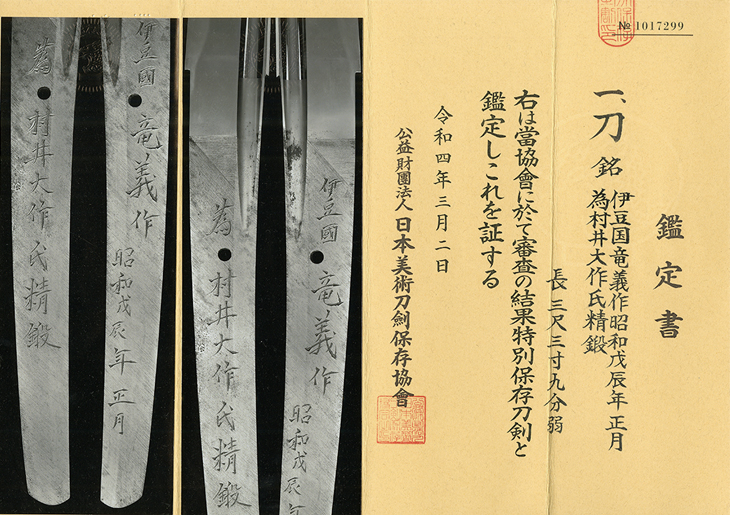 № 1017299
鑑定書
一、刀 銘 伊豆国竜義作昭和戊辰年正月
為村井大作氏精鍛
長 三尺三寸九分弱
右は當協會に於て審査の結果特別保存刀剣と
鑑定しこれを証する
令和四年三月二日
公益財團法人日本美術刀劍保存協會
伊豆國竜義作
昭和戊辰年
為村井大作氏精鍛
伊豆國竜義作
昭和戊辰年正月
為村井大作氏精鍛